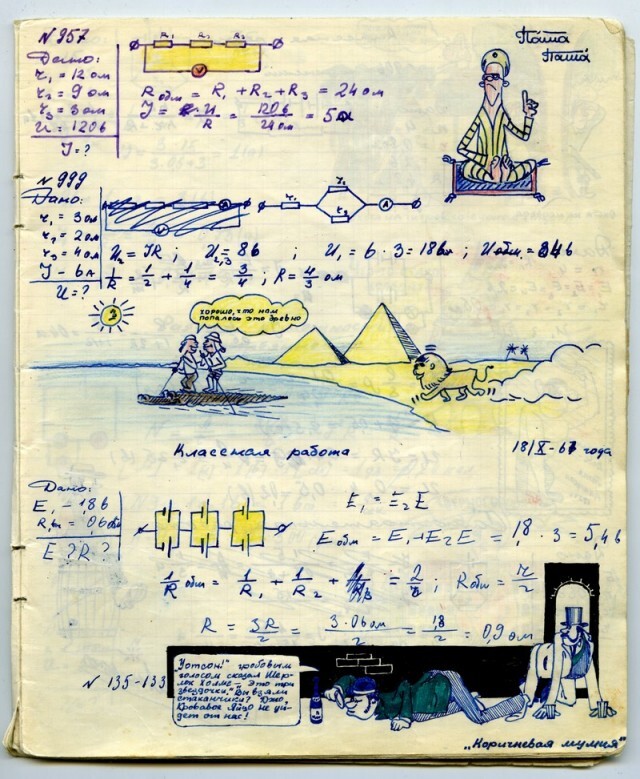 N 957
Дано:
r₁ = 12 ом
r₂ = 9 ом
r₃ = 3 ом
U = 120 в
J = ?
R₁ R₂ R₃
V
R общ = R₁ + R₂ + R₃ = 24 ом
J = U/R = 120 в/24 ом = 5 а
Паша
Паша
N 999
Дано:
r₁ = 3 ом
r₂ = 2 ом
r₃ = 4 ом
J – 6 а
U = ?
A
V
r₁
r₂
A
U₂ = JR ; U₂,₃ = 8 в ; U₁ = 6 · 3 = 18 в ; U общ. =
1/R = 1/2 + 1/4 = 3/4 ; R = 4/3 ом
хорошо, что нам
попалось это бревно
Классная работа
18/X-67 года
Дано:
E₁ – 1,8 в
R₁ = 0,6 ом
E ? R ?
E₁ = E₂ E
E общ = E₁ + E₂ E = 1,8 · 3 = 5,4 в
1/R общ = 1/R₁ + 1/R₂ + = 2/ ; R общ = r/2
R = 3R/2 = 3 · 0,6 ом/2 = 1,8/2 = 0,9 ом
N 135-133
"Уотсон!" гробовым
голосом сказал Шер-
лок Холмс – "Это три
звездочки." Вы взяли
стаканчики?
Кровавое Яйцо не уй-
дет от нас!
„Коричневая мумия"